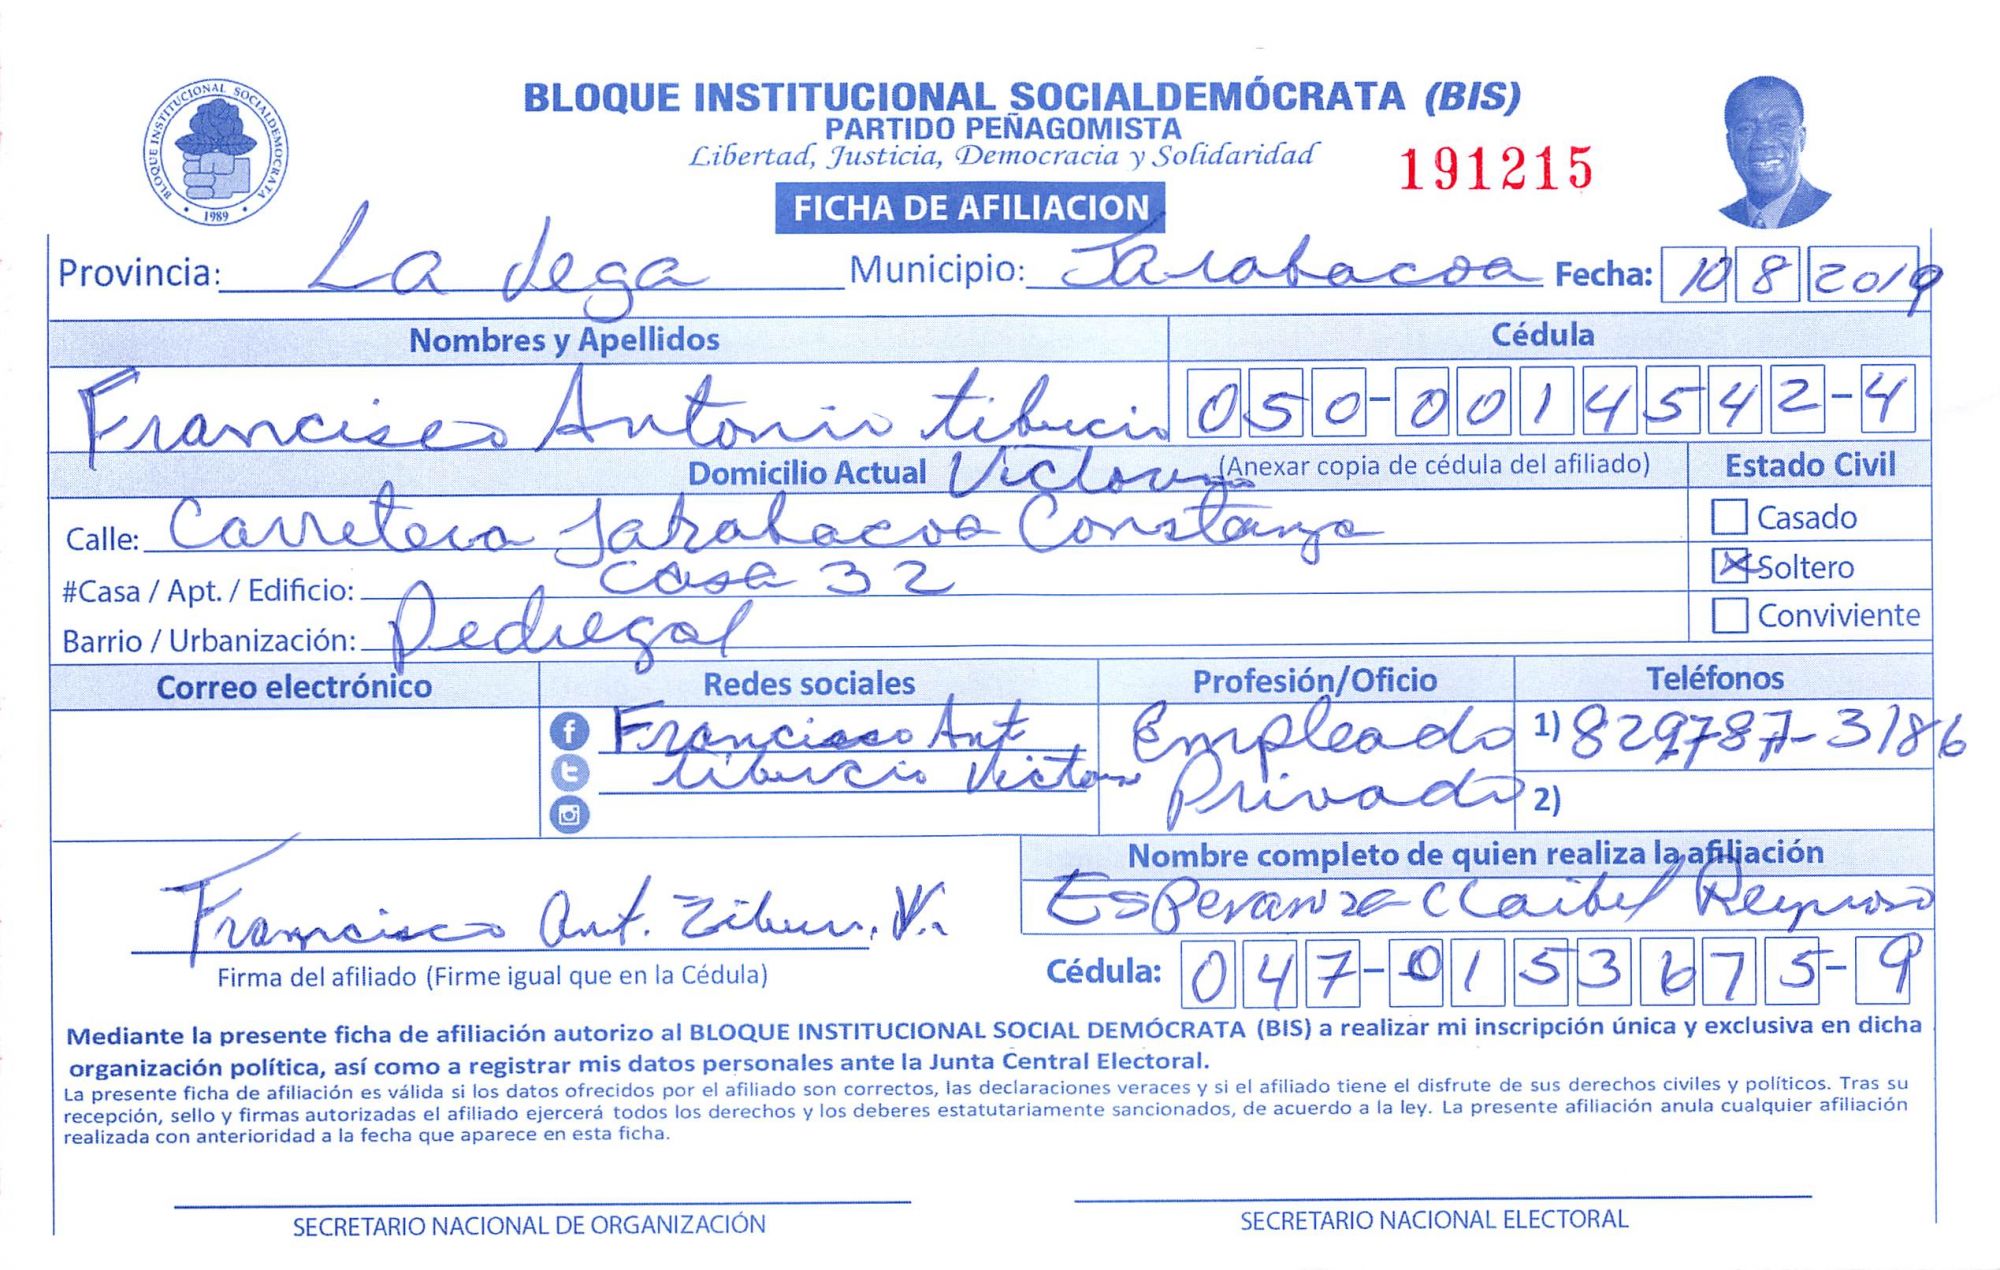 BLOQUE INSTITUCIONAL SOCIALDEMÓCRATA (BIS)
PARTIDO PEÑAGOMISTA
Libertad, Justicia, Democracia y Solidaridad
191215
BLOQUE INSTITUCIONAL SOCIALDEMOCRATA
1989
FICHA DE AFILIACION
Provincia: La Vega Municipio: Jarabacoa Fecha: 10 8 2019
Nombres y Apellidos Cédula
Francisco Antonio tiburcio 050-0014542-4
Domicilio Actual Victoria (Anexar copia de cédula del afiliado) Estado Civil
Calle: Carretera Jarabacoa Constanza Casado
#Casa / Apt. / Edificio: casa 32 Soltero
Barrio / Urbanización: Pedregal Conviviente
Correo electrónico Redes sociales Profesión/Oficio Teléfonos
Francisco Ant Empleado 1) 829787-3186
tiburcio Privado 2)
Nombre completo de quien realiza la afiliación
Francisco Ant. V. Esperanza Claibel Reynoso
Firma del afiliado (Firme igual que en la Cédula) Cédula: 047-0153675-9
Mediante la presente ficha de afiliación autorizo al BLOQUE INSTITUCIONAL SOCIAL DEMÓCRATA (BIS) a realizar mi inscripción única y exclusiva en dicha
organización política, así como a registrar mis datos personales ante la Junta Central Electoral.
La presente ficha de afiliación es válida si los datos ofrecidos por el afiliado son correctos, las declaraciones veraces y si el afiliado tiene el disfrute de sus derechos civiles y políticos. Tras su
recepción, sello y firmas autorizadas el afiliado ejercerá todos los derechos y los deberes estatutariamente sancionados, de acuerdo a la ley. La presente afiliación anula cualquier afiliación
realizada con anterioridad a la fecha que aparece en esta ficha.
SECRETARIO NACIONAL DE ORGANIZACIÓN SECRETARIO NACIONAL ELECTORAL